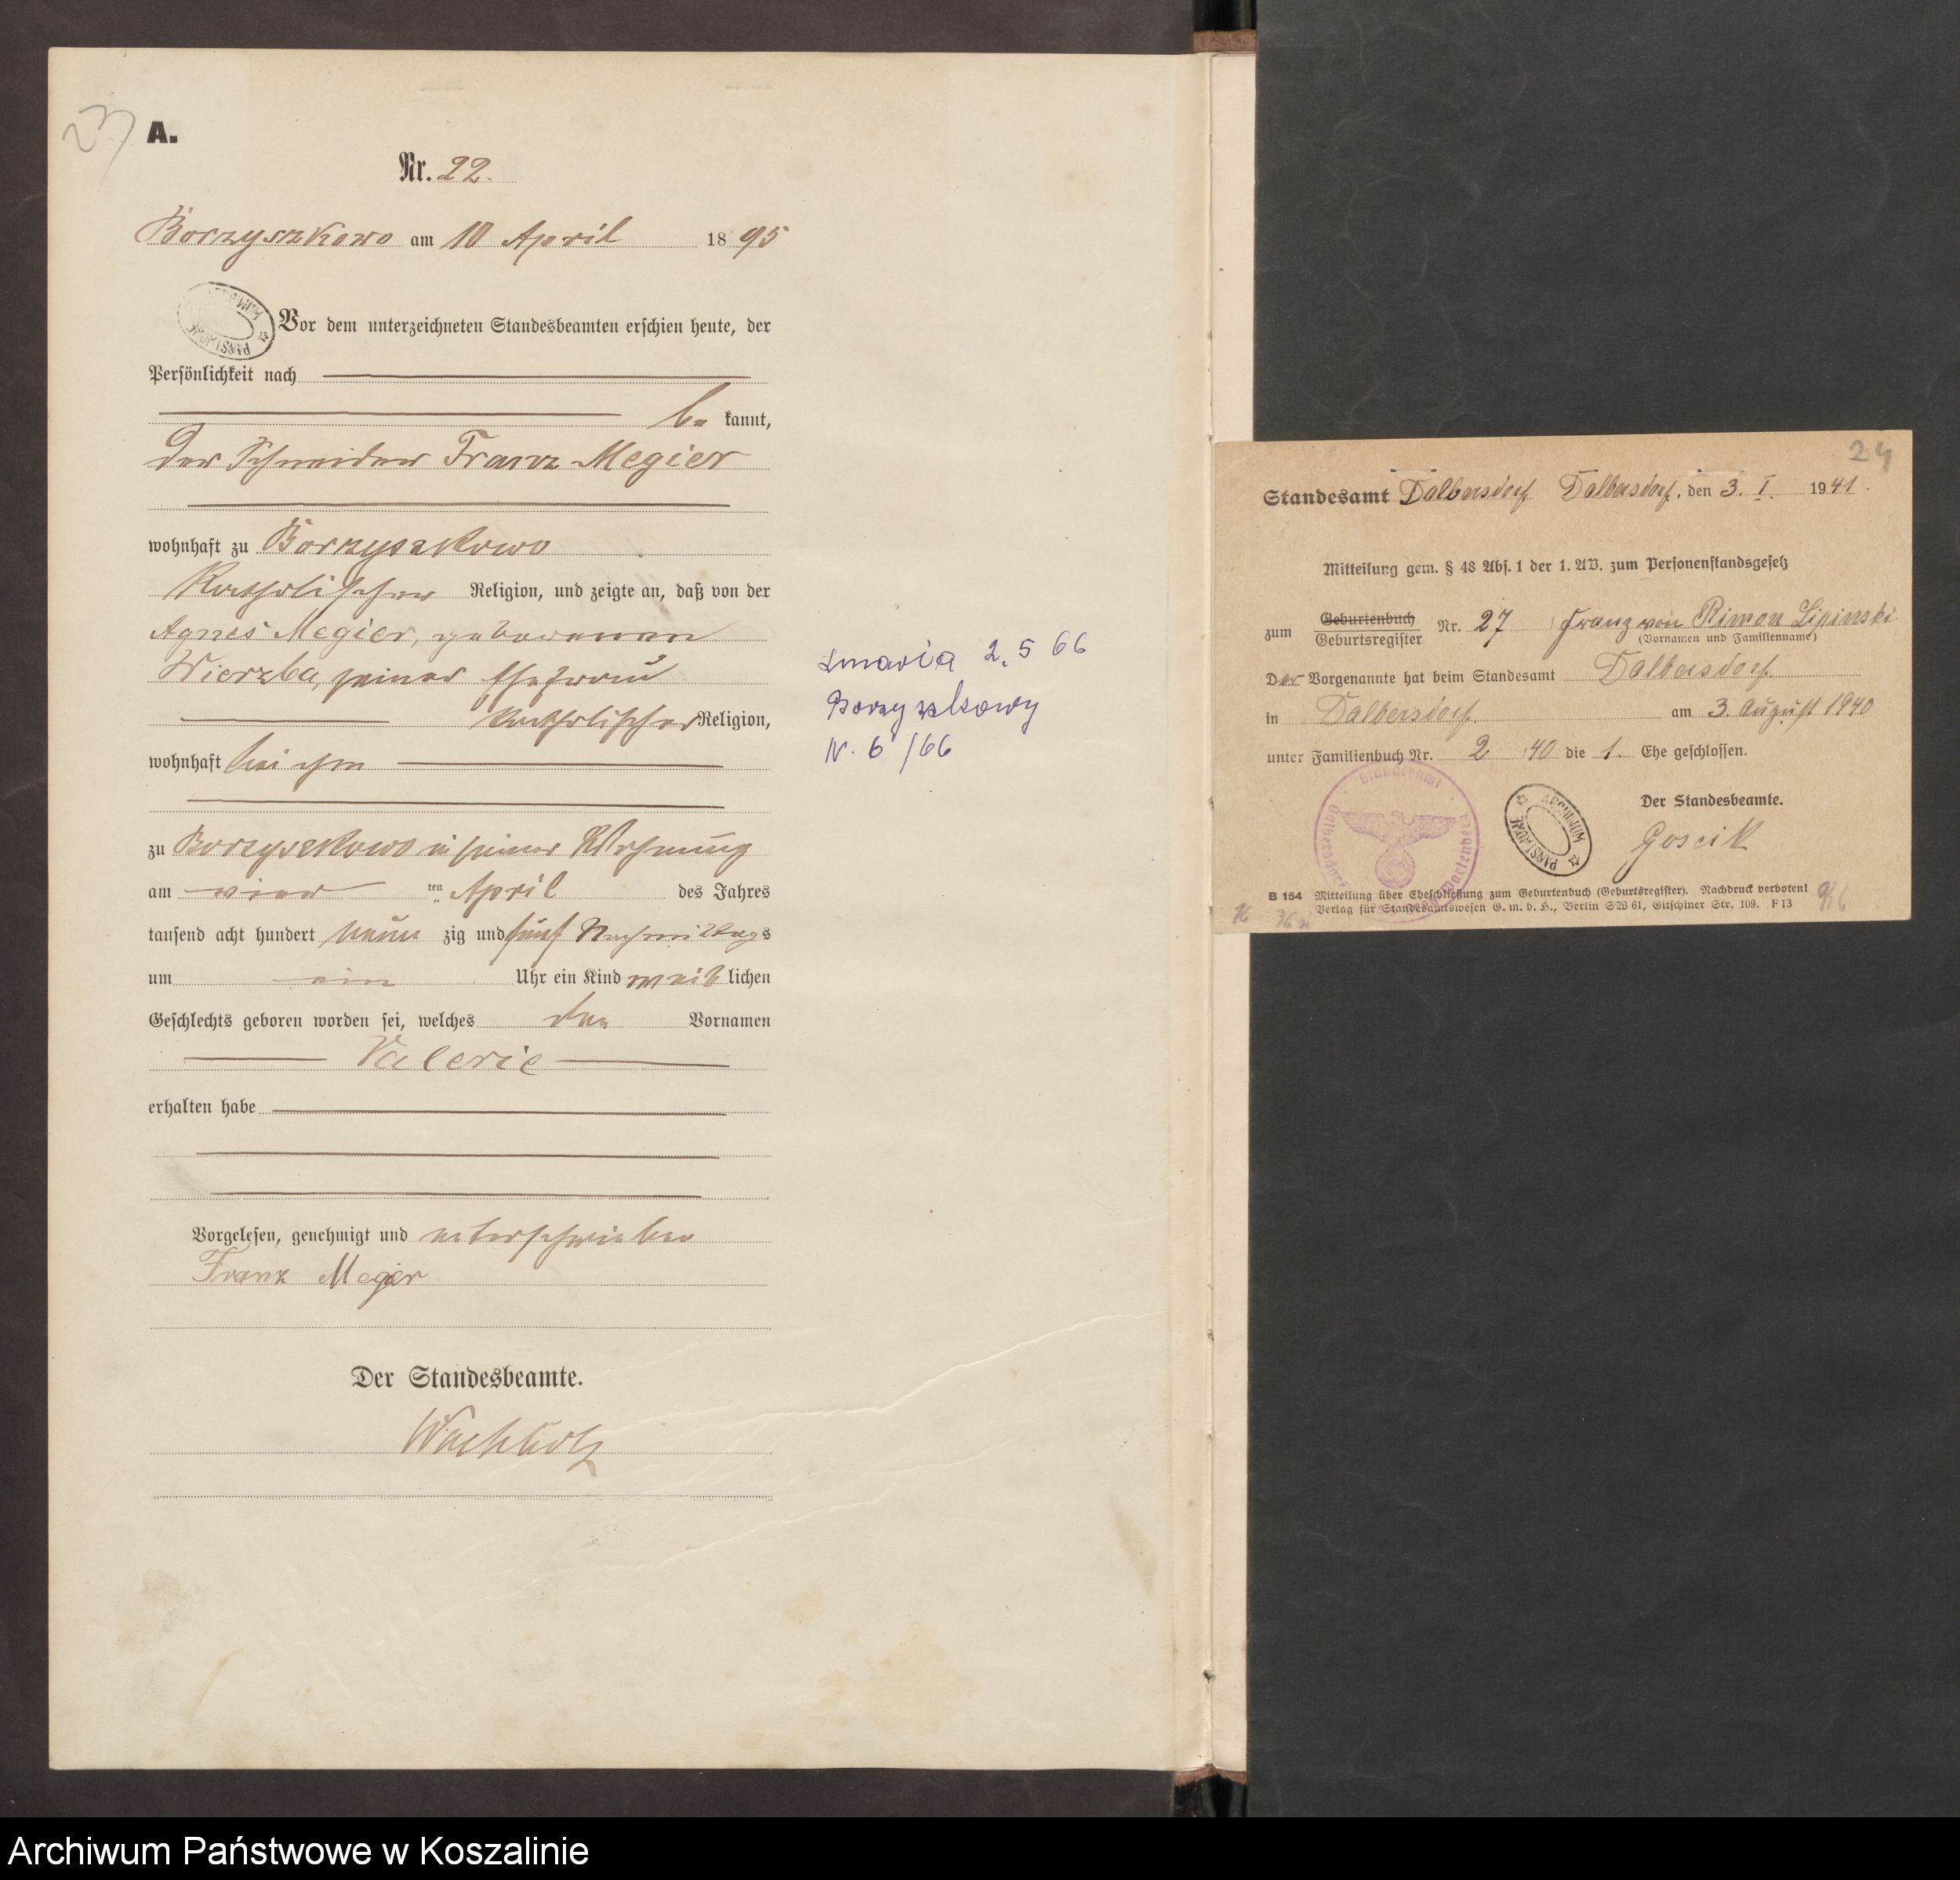 23
A.
Nr. 22.
Borzyszkowo am 10 April 1895
Vor dem unterzeichneten Standesbeamten erschien heute, der
Persönlichkeit nach
be kannt,
der Schneider Franz Megier
wohnhaft zu Borzyszkowo
katholischer Religion, und zeigte an, daß von der
Agnes Megier, geborenen
Wierzba, seiner Ehefrau
katholischer Religion,
wohnhaft bei ihm
zu Borzyszkowo in seiner Wohnung
am vier ten April des Jahres
tausend acht hundert neun zig und fünf Nachmittags
um ein Uhr ein Kind weib lichen
Geschlechts geboren worden sei, welches den Vornamen
Valerie
erhalten habe
Vorgelesen, genehmigt und unterschrieben
Franz Megier
Der Standesbeamte.
zmarła 2.5 66
Borzyszkowy
N. 6/66
24
Standesamt Dalbersdorf Dalbersdorf, den 3. I. 1941.
Mitteilung gem. § 48 Abs. 1 der 1. AV. zum Personenstandsgesetz
zum Geburtenbuch
Geburtsregister Nr. 27 Franz von Lipinski
(Vornamen und Familienname)
Der Vorgenannte hat beim Standesamt Dalbersdorf
in Dalbersdorf am 3. August 1940
unter Familienbuch Nr. 2 /40 die 1. Ehe geschlossen.
Der Standesbeamte.
Goscik
ARCHIWUM PAŃSTWOWE
B 154 Mitteilung über Eheschließung zum Geburtenbuch (Geburtsregister). Nachdruck verboten!
Verlag für Standesamtswesen G. m. b. H., Berlin SW 61, Gitschiner Str. 109. F 13
Archiwum Państwowe w Koszalinie